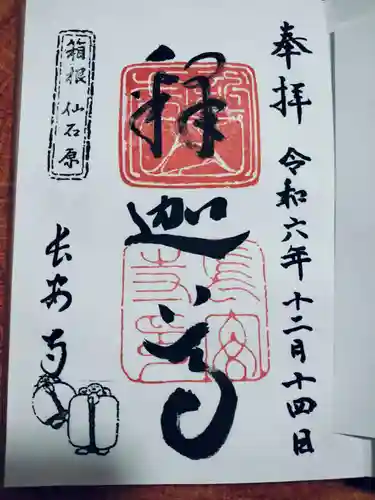 奉拝
令和六年十二月十四日
釋迦尊
箱根仙石原
長安寺